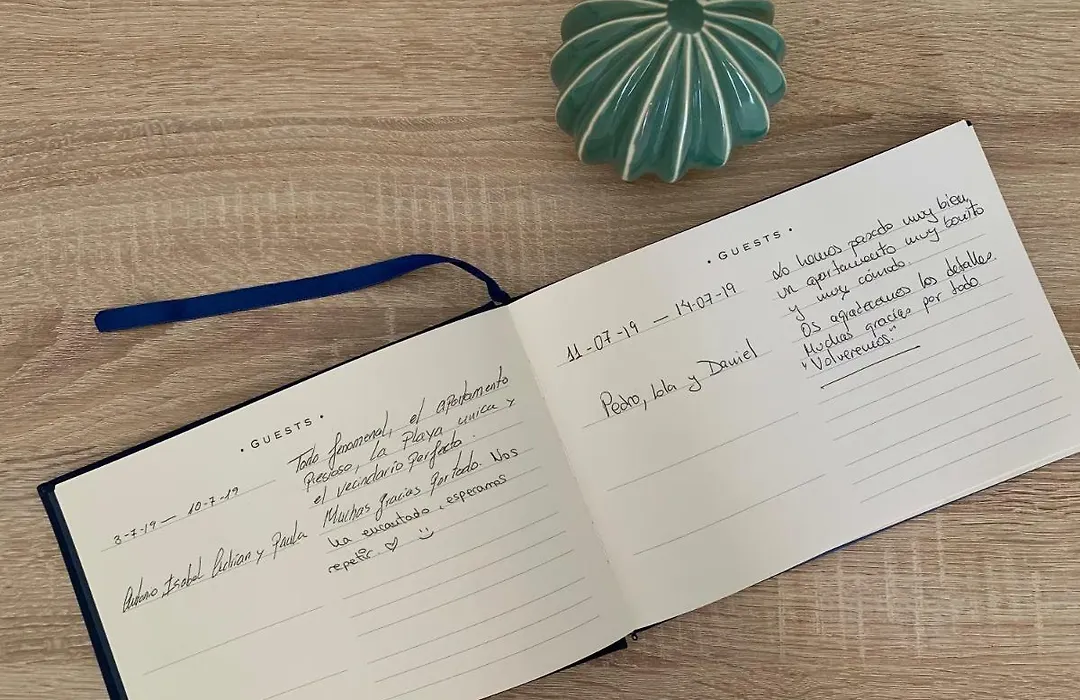 • GUESTS •
3-7-19 — 10-7-19
Antonio, Isabel Adrian y Paula
Todo fenomenal, el apartamento
Precioso, la Playa unica y
el vecindario Perfecto.
Muchas gracias Por todo. Nos
ha encantado, esperamos
repetir ♡ :)
• GUESTS •
11-07-19 — 14-07-19
Pedro, Lola y Daniel
Lo hemos pasado muy bien,
un apartamento muy bonito
y muy cómodo.
Os agradecemos los detalles.
Muchas gracias por todo.
"Volveremos."